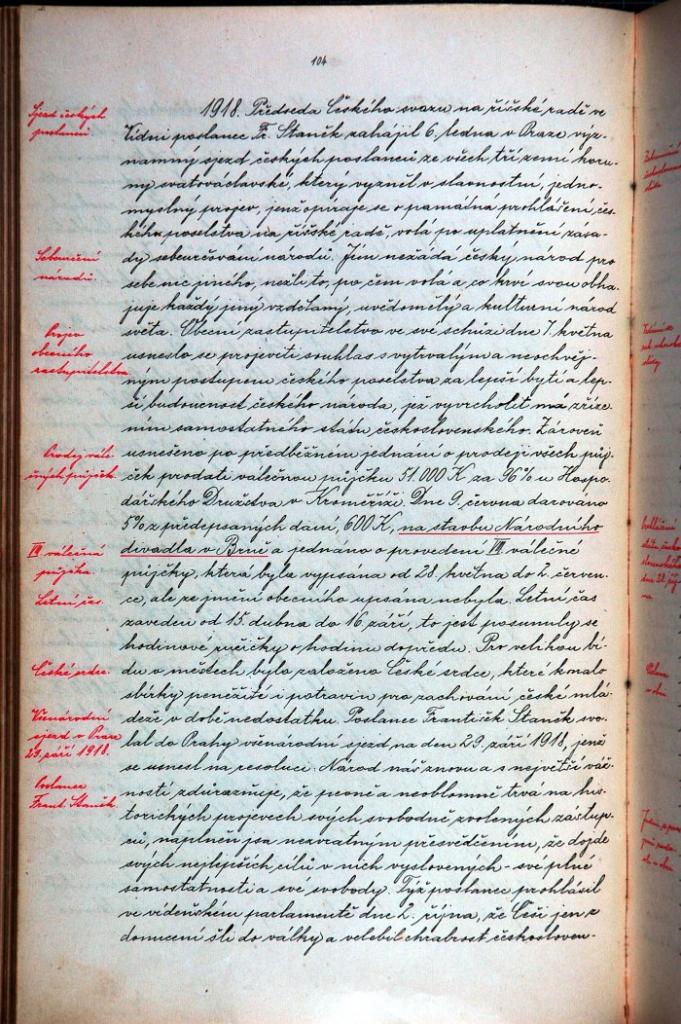 104
Sjezd českých
poslanců.
1918. Předseda Českého svazu na říšské radě ve
Vídni poslanec Fr. Staněk zahájil 6. ledna v Praze výz-
namný sjezd českých poslanců ze všech tří zemí koru-
ny svatováclavské, který vyzněl v slavnostní, jedno-
myslný projev, jenž opíraje se o památná prohlášení čes-
kého poselstva na říšské radě, volá po uplatnění zása-
Sebeurčení
národů.
dy sebeurčování národů. Jím nežádá český národ pro
sebe nic jiného, nežli to, po čem volá a co krví svou obha-
juje každý jiný vzdělaný, uvědomělý a kulturní národ
Projev
obecního
zastupitelstva
světa. Obecní zastupitelstvo ve své schůzi dne 7. května
usneslo se projeviti souhlas s vytrvalým a neochvěj-
ným postupem českého poselstva za lepší bytí a lep-
ší budoucnost českého národa, jež vyvrcholit má zříze-
ním samostatného státu československého. Zároveň
Prodej vále-
čných půjček.
usneseno po předběžném jednání o prodeji všech půj-
ček prodati válečnou půjčku 51.000 K za 96% u Hospo-
dářského Družstva v Kroměříži. Dne 9. června darováno
5% z předepsaných daní, 600 K, na stavbu Národního
VIII. válečná
půjčka.
divadla v Brně a jednáno o provedení VIII. válečné
půjčky, která byla vypsána od 28. května do 2. červen-
Letní čas.
ce, ale ze jmění obecního upsána nebyla. Letní čas
zaveden od 15. dubna do 16. září, to jest posunuly se
hodinové ručičky o hodinu dopředu. Pro velikou bí-
České srdce.
du v městech bylo založeno České srdce, které konalo
sbírky peněžité i potravin pro zachování české mlá-
Všenárodní
sjezd v Praze
29. září 1918.
deže v době nedostatku. Poslanec František Staněk svo-
lal do Prahy všenárodní sjezd na den 29. září 1918, jenž
se usnesl na resoluci: Národ náš znovu a s největší váž-
Poslanec
Frant. Staněk.
ností zdůrazňuje, že pevně a neoblomně trvá na his-
torických projevech svých svobodně zvolených zástup-
ců, naplněn jsa nezvratným přesvědčením, že dojde
svých nejlepších cílů v nich vyslovených - své plné
samostatnosti a své svobody. Týž poslanec prohlásil
ve vídeňském parlamentě dne 2. října, že Češi jen z
donucení šli do války a velebil chrabrost českosloven-